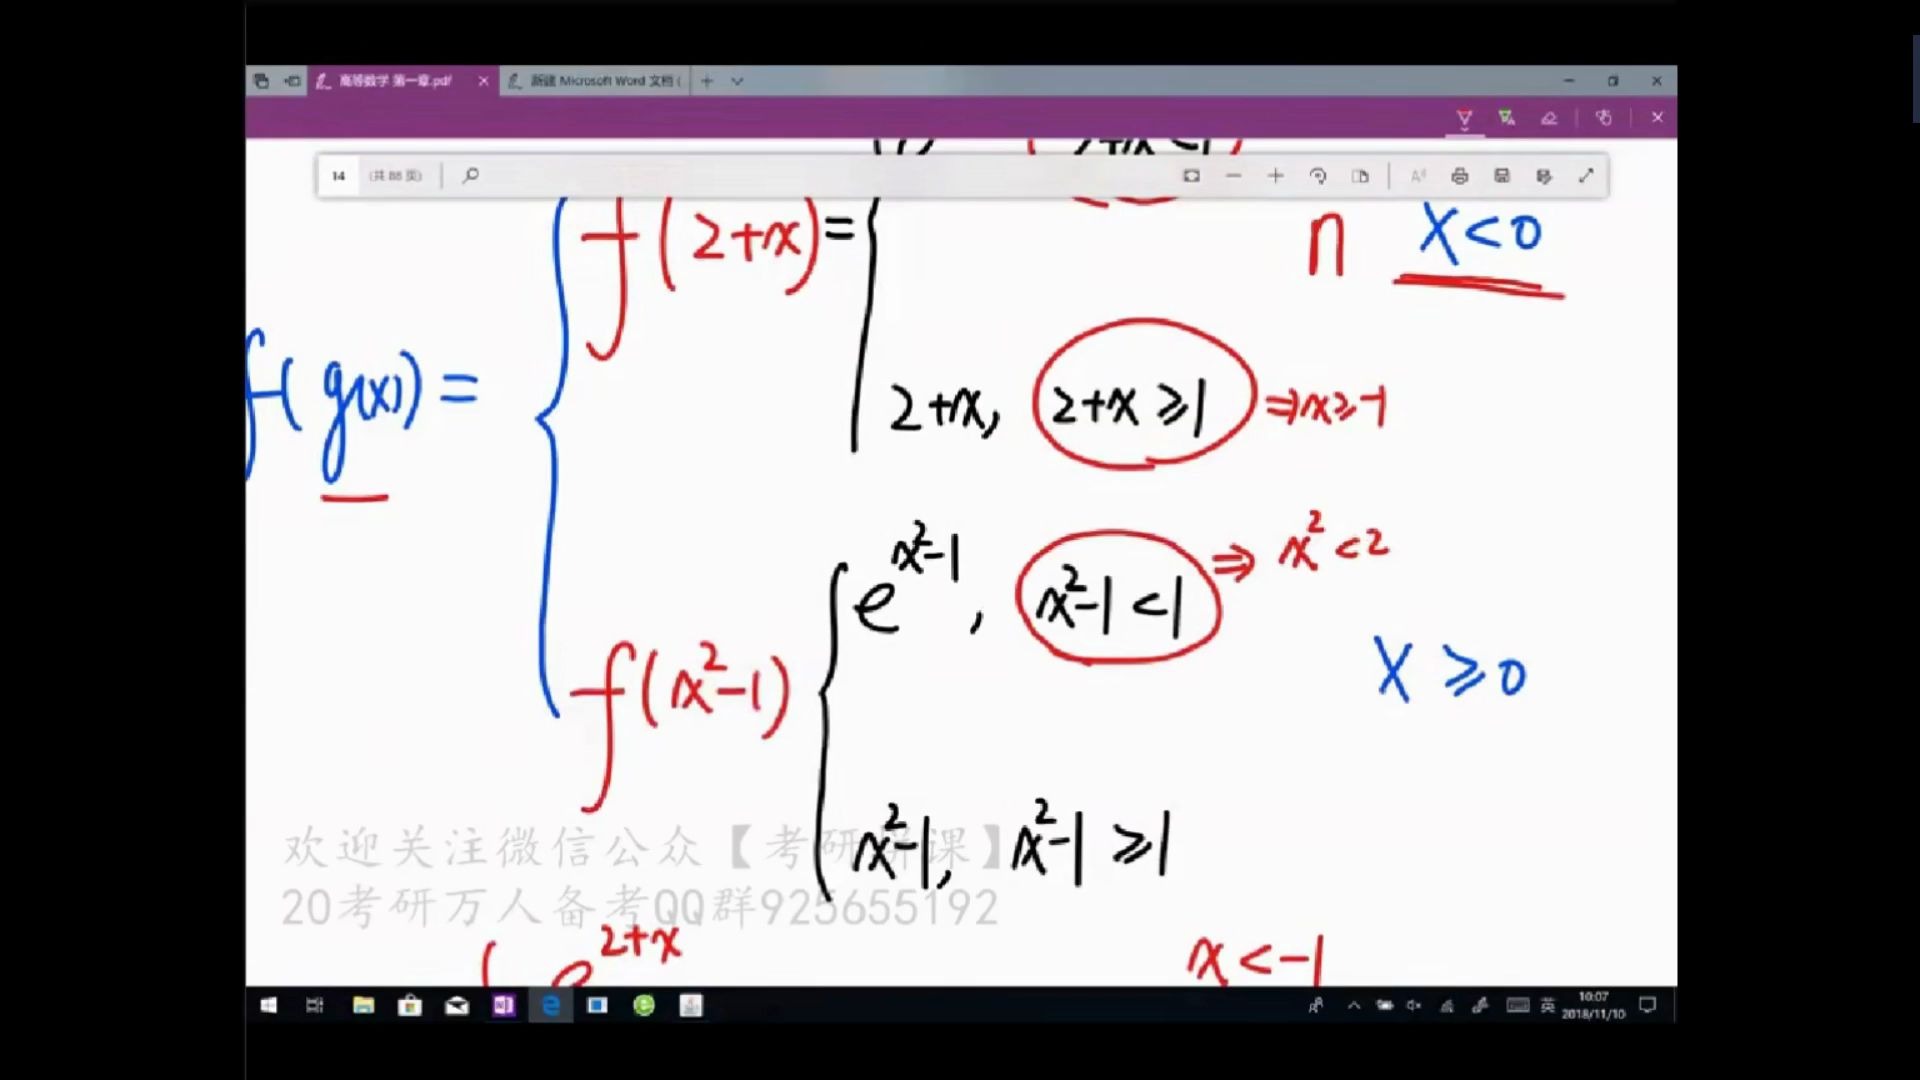 高等数学 第一章.pdf
新建 Microsoft Word 文档 (
14 (共 88 页)
2+x<1
f(2+x)=
∩ x<0
f(g(x))=
2+x, 2+x≥1 ⇒x≥-1
e^{x²-1}, x²-1<1 ⇒ x²<2
f(x²-1)
x≥0
x²-1, x²-1≥1
欢迎关注微信公众【考研拼课】
20考研万人备考QQ群925655192
e^{2+x} x<-1
英
10:07
2018/11/10